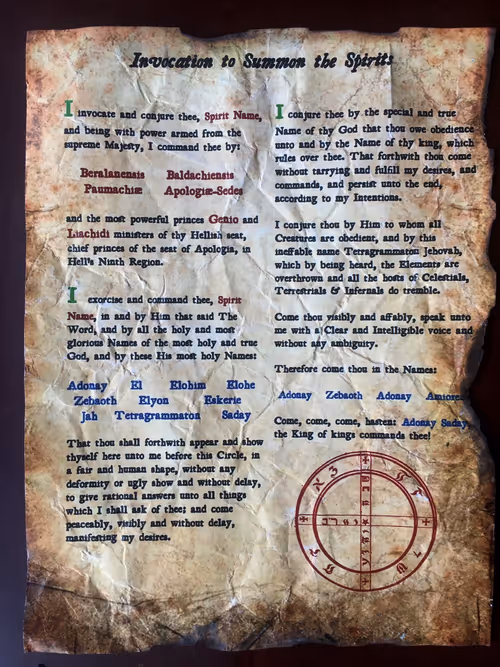 Invocation to Summon the Spirits
I invocate and conjure thee, Spirit Name,
and being with power armed from the
supreme Majesty, I command thee by:
Beralanensis Baldachiensis
Paumachiæ Apologiæ-Sedes
and the most powerful princes Genio and
Liachidi ministers of thy Hellish seat,
chief princes of the seat of Apologia, in
Hell's Ninth Region.
I exorcise and command thee, Spirit
Name, in and by Him that said The
Word, and by all the holy and most
glorious Names of the most holy and true
God, and by these His most holy Names:
Adonay El Elohim Elohe
Zebaoth Elyon Eskerie
Jah Tetragrammaton Saday
That thou shall forthwith appear and show
thyself here unto me before this Circle, in
a fair and human shape, without any
deformity or ugly show and without delay,
to give rational answers unto all things
which I shall ask of thee; and come
peaceably, visibly and without delay,
manifesting my desires.
I conjure thee by the special and true
Name of thy God that thou owe obedience
unto and by the Name of thy king, which
rules over thee. That forthwith thou come
without tarrying and fulfill my desires, and
commands, and persist unto the end,
according to my Intentions.
I conjure thou by Him to whom all
Creatures are obedient, and by this
ineffable name Tetragrammaton Jehovah,
which by being heard, the Elements are
overthrown and all the hosts of Celestials,
Terrestrials & Infernals do tremble.
Come thou visibly and affably, speak unto
me with a Clear and Intelligible voice and
without any ambiguity.
Therefore come thou in the Names:
Adonay Zebaoth Adonay Amiorem
Come, come, come, hasten: Adonay Saday
the King of kings commands thee!